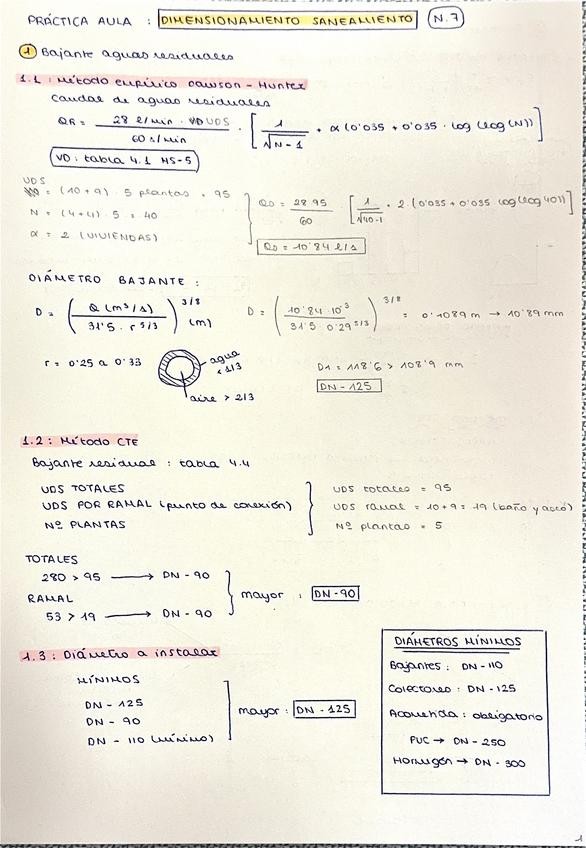 PRÁCTICA AULA : DIMENSIONAMIENTO SANEAMIENTO N.7
1 Bajante aguas residuales
1.1 : Método empírico Dawson - Hunter
Caudal de aguas residuales
QR = 28 l/min · UDS / 60 s/min · [ 1 / √N-1 + α (0'035 + 0'035 · log (log (N)) ]
UD : tabla 4.1 HS-5
UDS = (10+9) · 5 plantas = 95
N = (4+4) · 5 = 40
α = 2 (VIVIENDAS)
QD = 28·95 / 60 · [ 1 / √40-1 + 2 · (0'035 + 0'035 log(log 40)) ]
QD = 10'84 l/s
DIÁMETRO BAJANTE :
D = ( Q (m³/s) / 31'5 · r^5/3 )^3/8 (m)
D = ( 10'84 · 10^-3 / 31'5 · 0'29^5/3 )^3/8 = 0'1089 m → 10'89 mm
r = 0'25 a 0'33
agua < 1/3
aire > 2/3
D1 = 118'6 > 108'9 mm
DN - 125
1.2 : Método CTE
Bajante residual : tabla 4.4
UDS TOTALES
UDS POR RAMAL (punto de conexión)
Nº PLANTAS
UDS totales = 95
UDS ramal = 10 + 9 = 19 (baño y aseo)
Nº plantas = 5
TOTALES
280 > 95 → DN - 90
RAMAL
53 > 19 → DN - 90
mayor : DN - 90
1.3 : Diámetro a instalar
MÍNIMOS
DN - 125
DN - 90
DN - 110 (mínimo)
mayor : DN - 125
DIÁMETROS MÍNIMOS
Bajantes : DN - 110
Colectores : DN - 125
Acometida : obligatorio
PVC → DN - 250
Hormigón → DN - 300
1